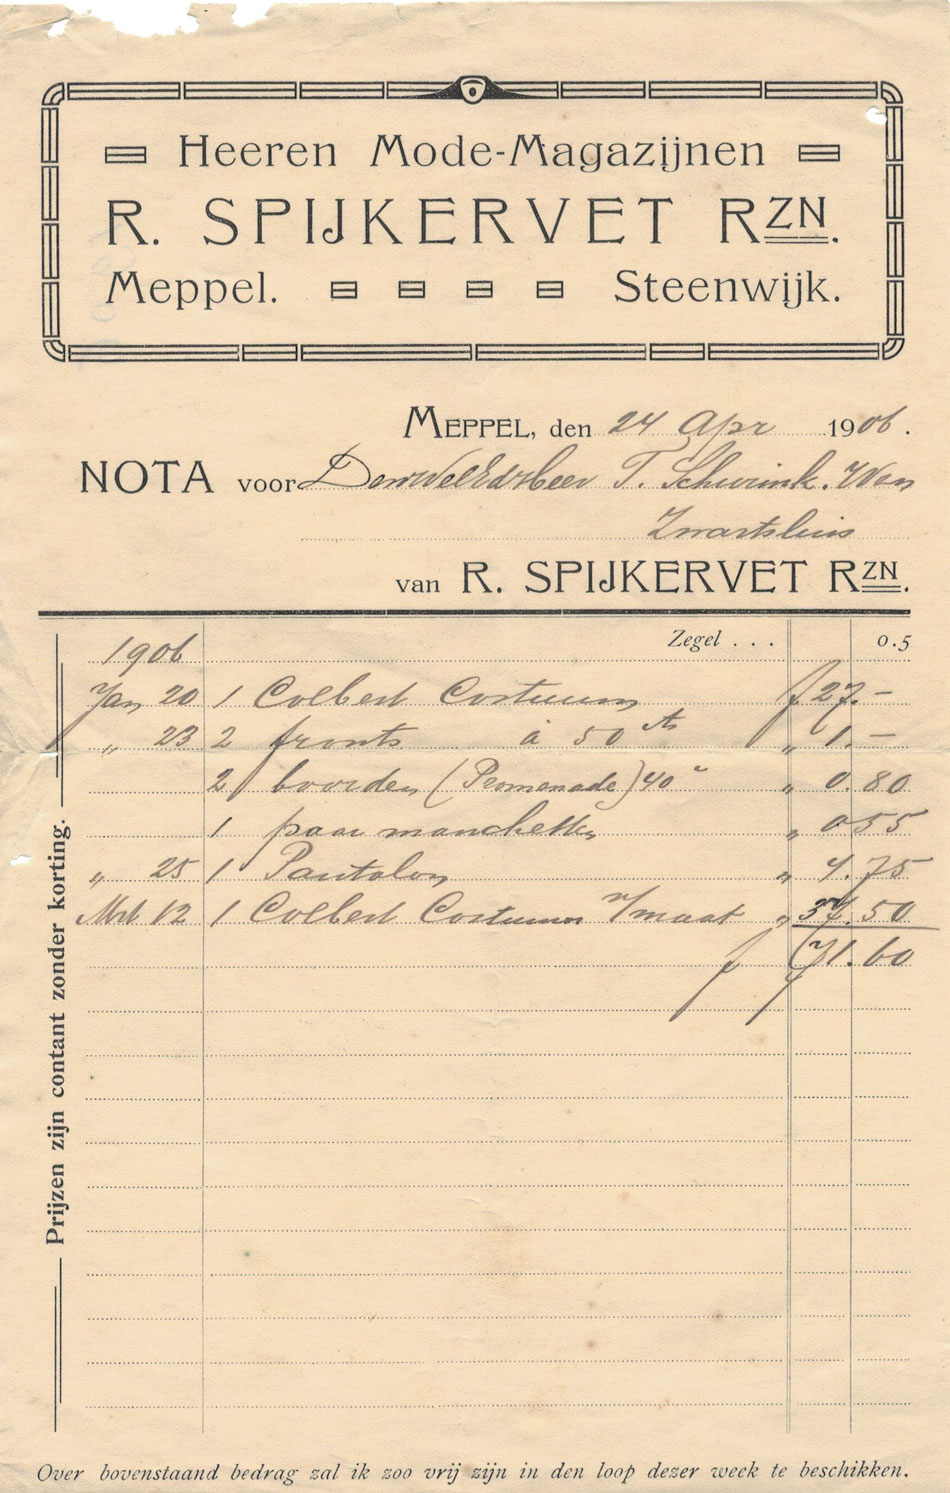 Heeren Mode-Magazijnen
R. SPIJKERVET RZN.
Meppel. Steenwijk.
MEPPEL, den 24 Apr 1906.
NOTA voor Den WelEdHeer T. Schurink. Wzn
Zwartsluis
van R. SPIJKERVET RZN.
1906 Zegel . . . 0.5
Jan 20 1 Colbert Costuum f 27.—
„ 23 2 fronts à 50 cts „ 1.—
2 boorden (Promenade) 40 c „ 0.80
1 paar manchetten „ 0 55
„ 25 1 Pantalon „ 4.75
Mrt 12 1 Colbert Costuum n/maat „ 37.50
f 71.60
Prijzen zijn contant zonder korting.
Over bovenstaand bedrag zal ik zoo vrij zijn in den loop dezer week te beschikken.